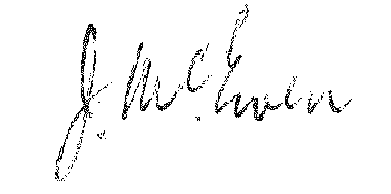 J. McEwen